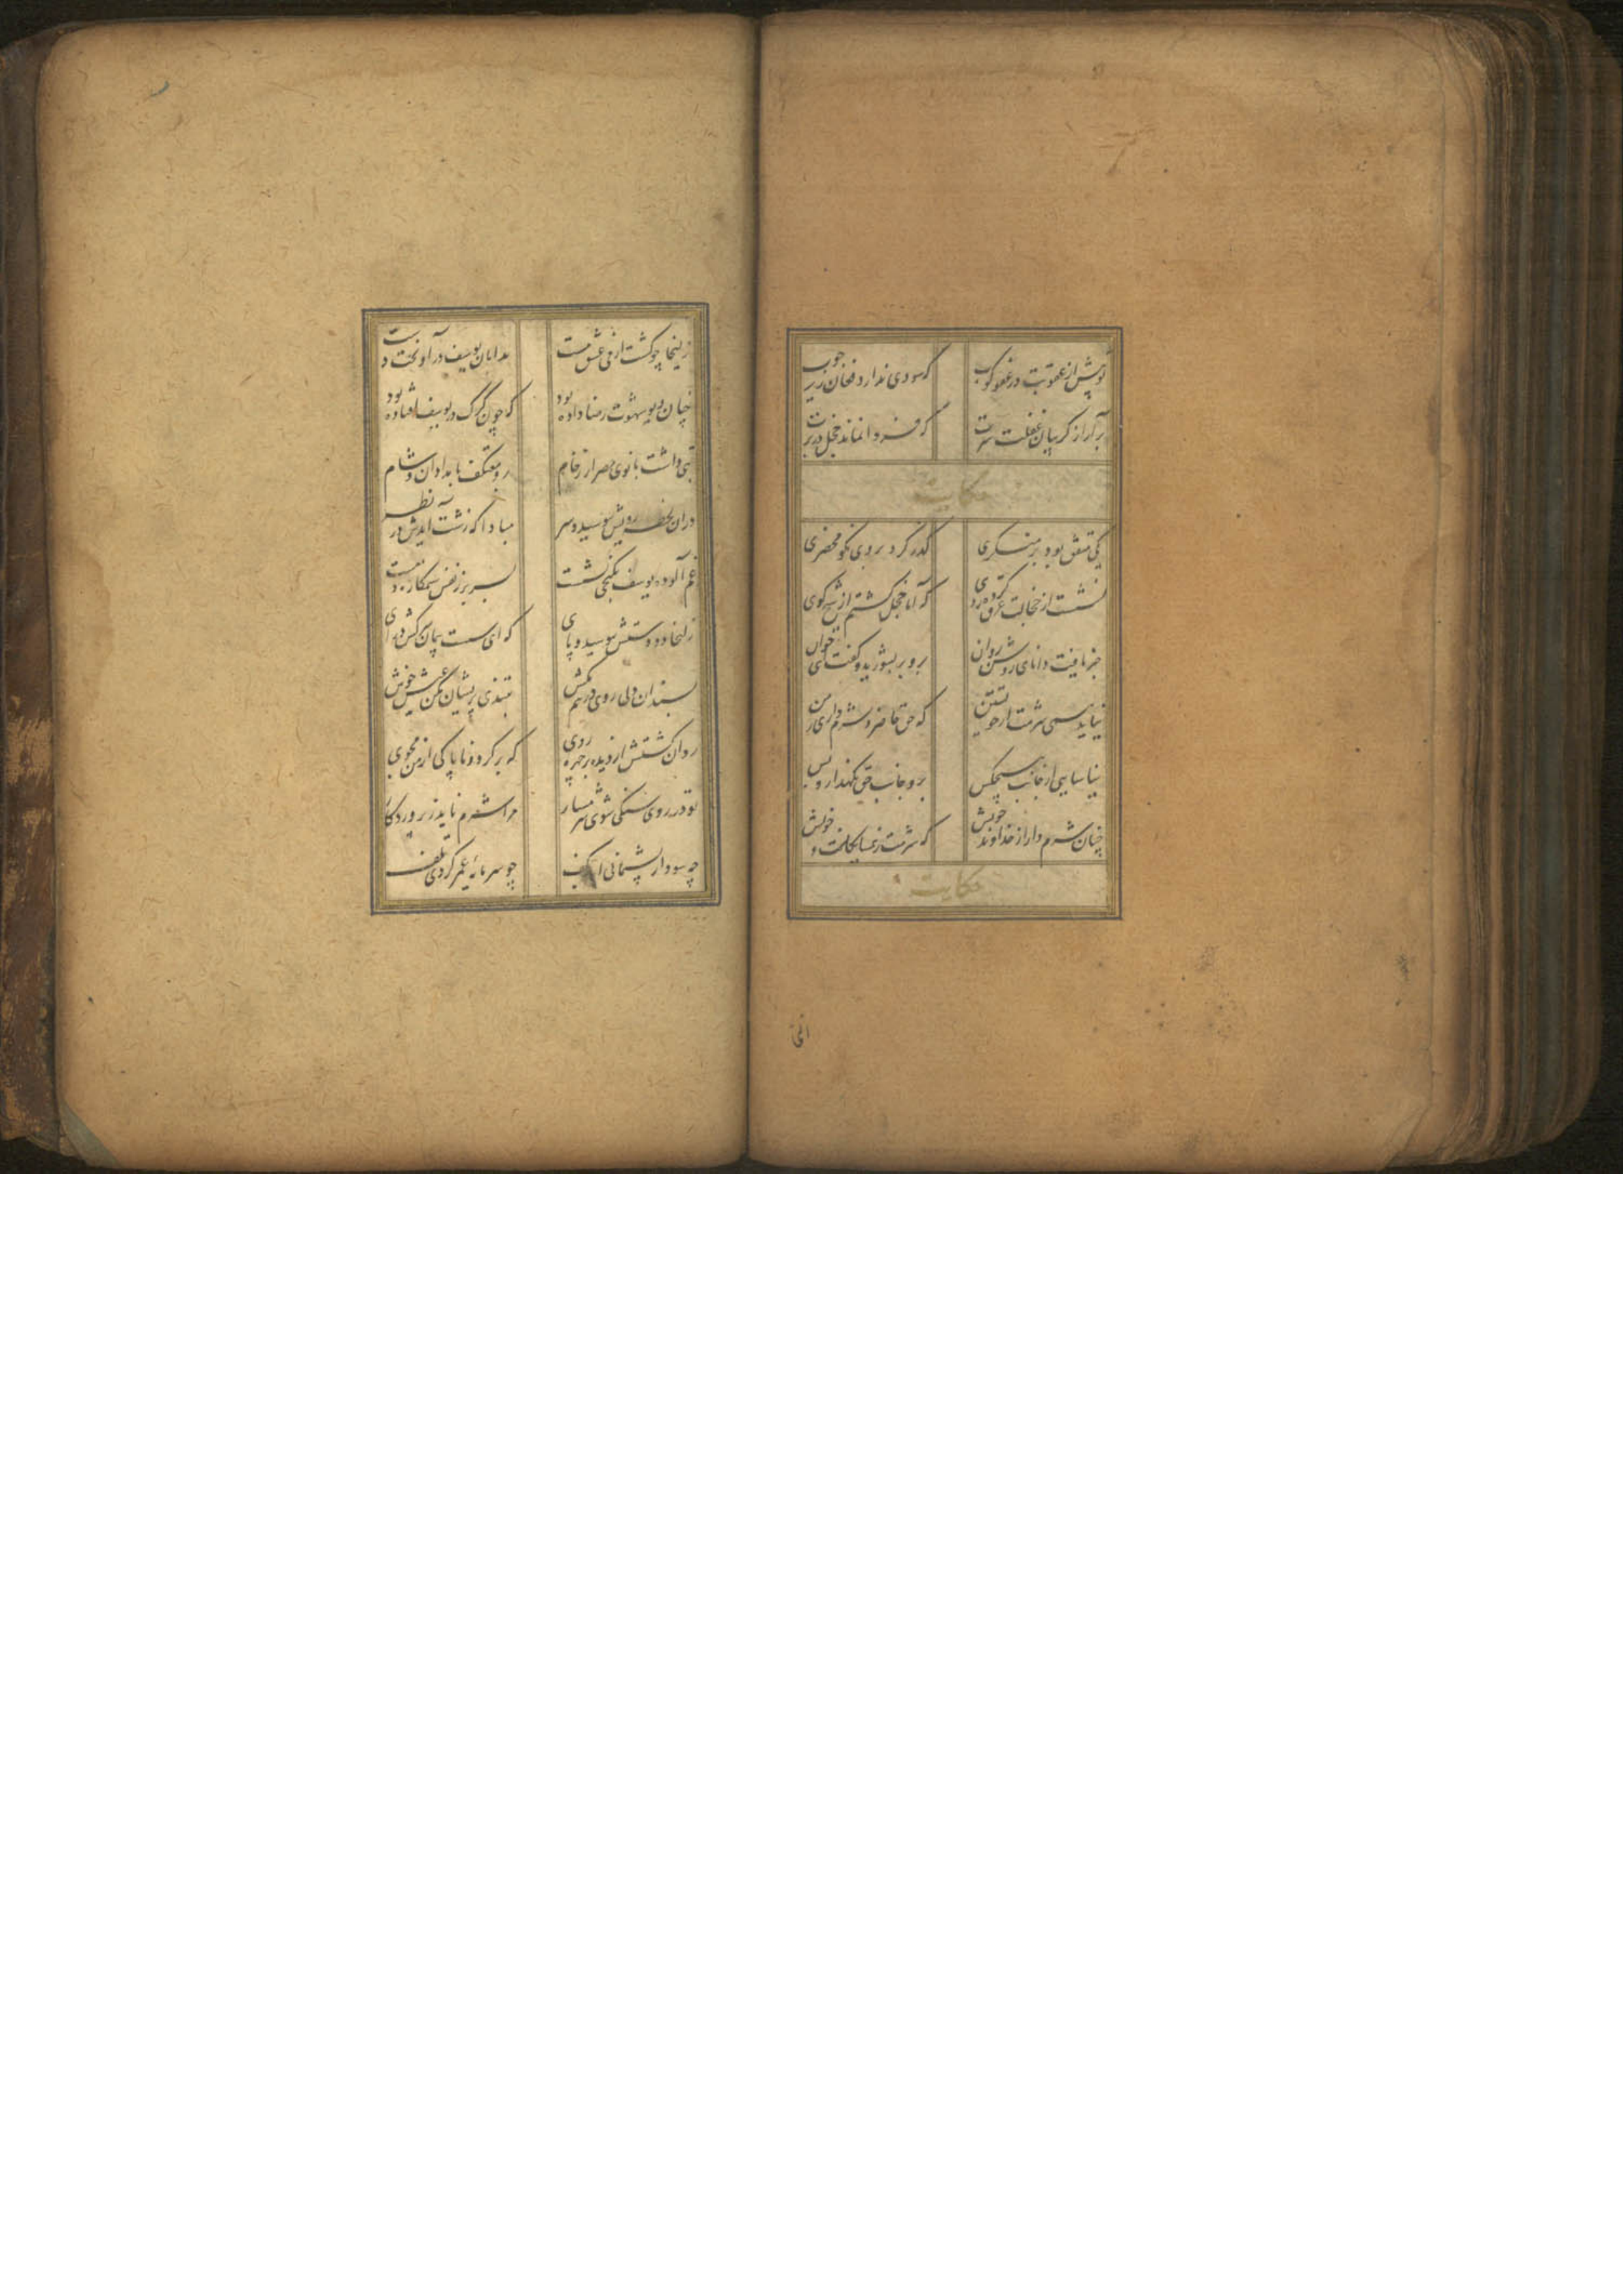 تو پیش از عقوبت در عفو کوب که سودی ندارد فغان زیر چوب
برآر از گریبان غفلت سرت که فردا نماند خجل در برت
حکایت
یکی متفق بود بر منکری گذر کرد بر وی نکو محضری
نشست از خجالت عرق کرده روی که آیا خجل گشتم از شیخ کوی
خبر یافت دانای روشن روان برو بر بشورید و گفت ای جوان
نیاید همی شرمت از خویشتن که حق حاضر و شرم داری ز من
نیاسایی از جانب هیچکس برو جانب حق نگهدار و بس
چنان شرم دار از خداوند خویش که شرمت ز همسایگانست و خویش
حکایت
زلیخا چو گشت از می عشق مست بدامان یوسف درآویخت دست
چنان دیو شهوت رضا داده بود که چون گرگ در یوسف افتاده بود
بتی داشت بانوی مصر از رخام برو معتکف بامدادان و شام
در آن لحظه رویش بپوشید و سر مبادا که زشت آیدش در نظر
غم آلوده یوسف بکنجی نشست بسر بر ز نفس ستمکاره دست
زلیخا دو دستش ببوسید و پای که ای سست پیمان سرکش درآی
بسندان دلی روی در هم مکش بتندی پریشان مکن عیش خوش
روان گشتش از دیده بر چهره جوی که برگرد و ناپاکی از من مجوی
تو در روی سنگی شوی شرمسار مرا شرم ناید ز پروردگار
چه سود از پشیمانی آید بکف چو سرمایه عمر کردی تلف